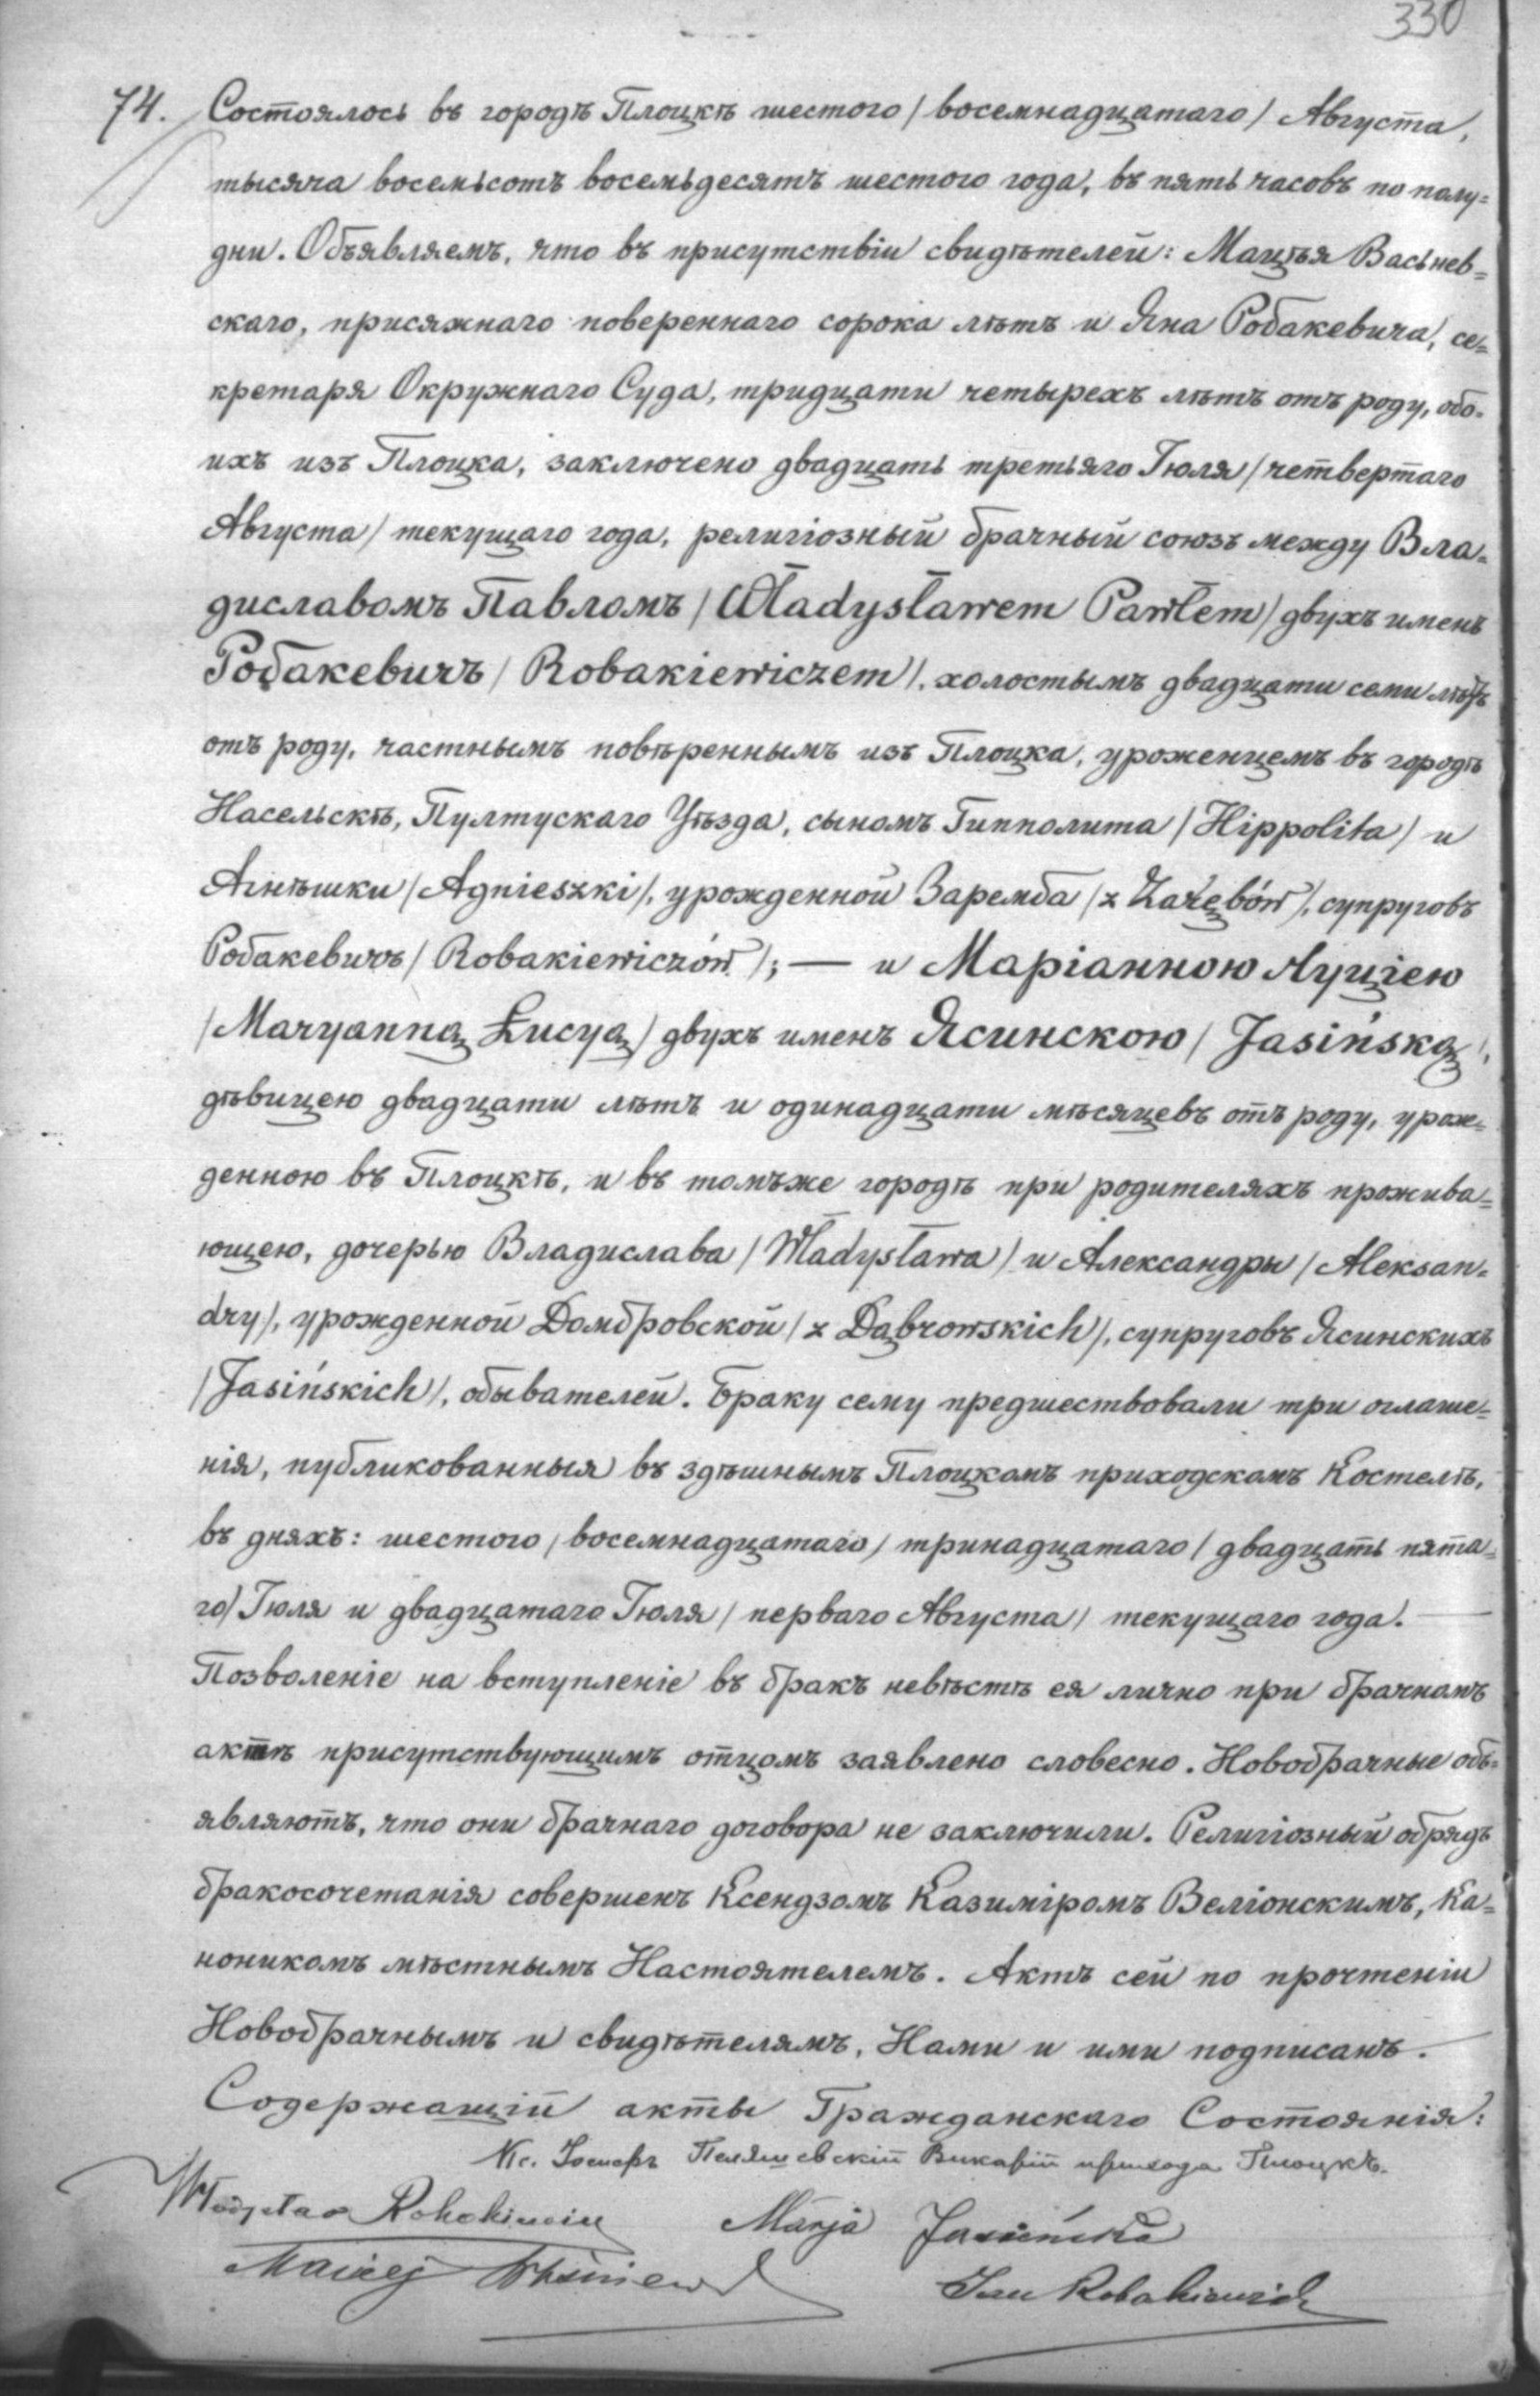 330
74. Состоялось въ городѣ Плоцкѣ шестого /восемнадцатаго/ Августа,
тысяча восемьсотъ восемьдесятъ шестого года, въ пять часовъ по полу=
дни. Объявляемъ, что въ присутствіи свидѣтелей: Мацѣя Васьнев=
скаго, присяжнаго повереннаго сорока лѣтъ и Яна Робакевича, се=
кретаря Окружнаго Суда, тридцати четырехъ лѣтъ отъ роду, обо=
ихъ изъ Плоцка, заключено двадцать третьяго Іюля /четвертаго
Августа/ текущаго года, религіозный брачный союзъ между Вла=
диславомъ Павломъ /Władysławem Pawłem/ двухъ именъ
Робакевичъ /Robakiewiczem/, холостымъ двадцати семи лѣтъ
отъ роду, частнымъ повѣреннымъ изъ Плоцка, уроженцемъ въ городѣ
Насельскѣ, Пултускаго Уѣзда, сыномъ Гипполита /Hippolita/ и
Агнѣшки /Agnieszki/, урожденной Заремба /z Zarębów/, супруговъ
Робакевичъ /Robakiewiczów/; — и Маріанною Луціею
/Maryanną Łucyą/ двухъ именъ Ясинскою /Jasińską/,
дѣвицею двадцати лѣтъ и одинадцати мѣсяцевъ отъ роду, урож=
денною въ Плоцкѣ, и въ томъже городѣ при родителяхъ прожива=
ющею, дочерью Владислава /Władysława/ и Александры /Aleksan=
dry/, урожденной Домбровской /z Dąbrowskich/, супруговъ Ясинскихъ
/Jasińskich/, обывателей. Браку сему предшествовали три оглаше=
нія, публикованныя въ здѣшнымъ Плоцкомъ приходскомъ Костелѣ,
въ дняхъ: шестого /восемнадцатаго/ тринадцатаго /двадцать пята=
го/ Іюля и двадцатаго Іюля /перваго Августа/ текущаго года. —
Позволеніе на вступленіе въ бракъ невѣстѣ ея лично при брачномъ
актѣ присутствующимъ отцомъ заявлено словесно. Новобрачные объ=
являютъ, что они брачнаго договора не заключили. Религіозный обрядъ
бракосочетанія совершенъ Ксендзомъ Казиміромъ Веліонскимъ, Ка=
ноникомъ мѣстнымъ Настоятелемъ. Актъ сей по прочтеніи
Новобрачнымъ и свидѣтелямъ, Нами и ими подписанъ.
Содержащій акты Гражданскаго Состоянія:
Кс. Викарій прихода Плоцкъ.
Władysław Robakiewicz Marja Jasińska
Maciej Waśniewski Jan Robakiewicz